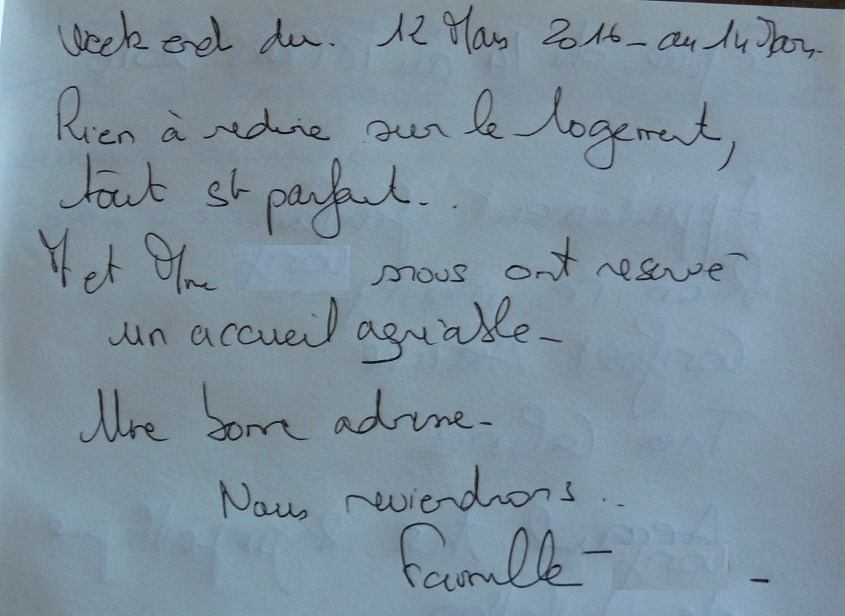 Week end du. 12 Mars 2016 - au 14 Mars.
Rien à redire sur le logement,
tout est parfait..
M et Mme nous ont reservé
un accueil agréable -
Une bonne adresse -
Nous reviendrons..
Famille - -